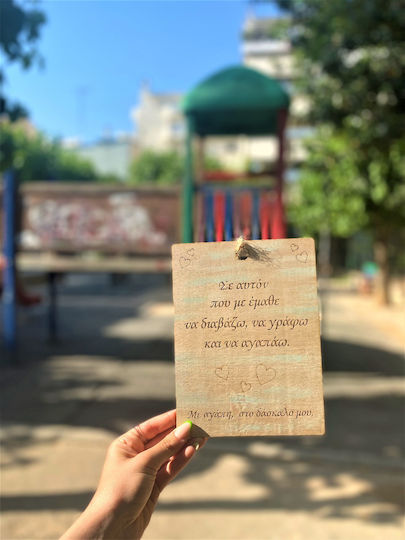 Σε αυτόν
που με έμαθε
να διαβάζω, να γράφω
και να αγαπάω.
Με αγάπη, στο δάσκαλό μου.